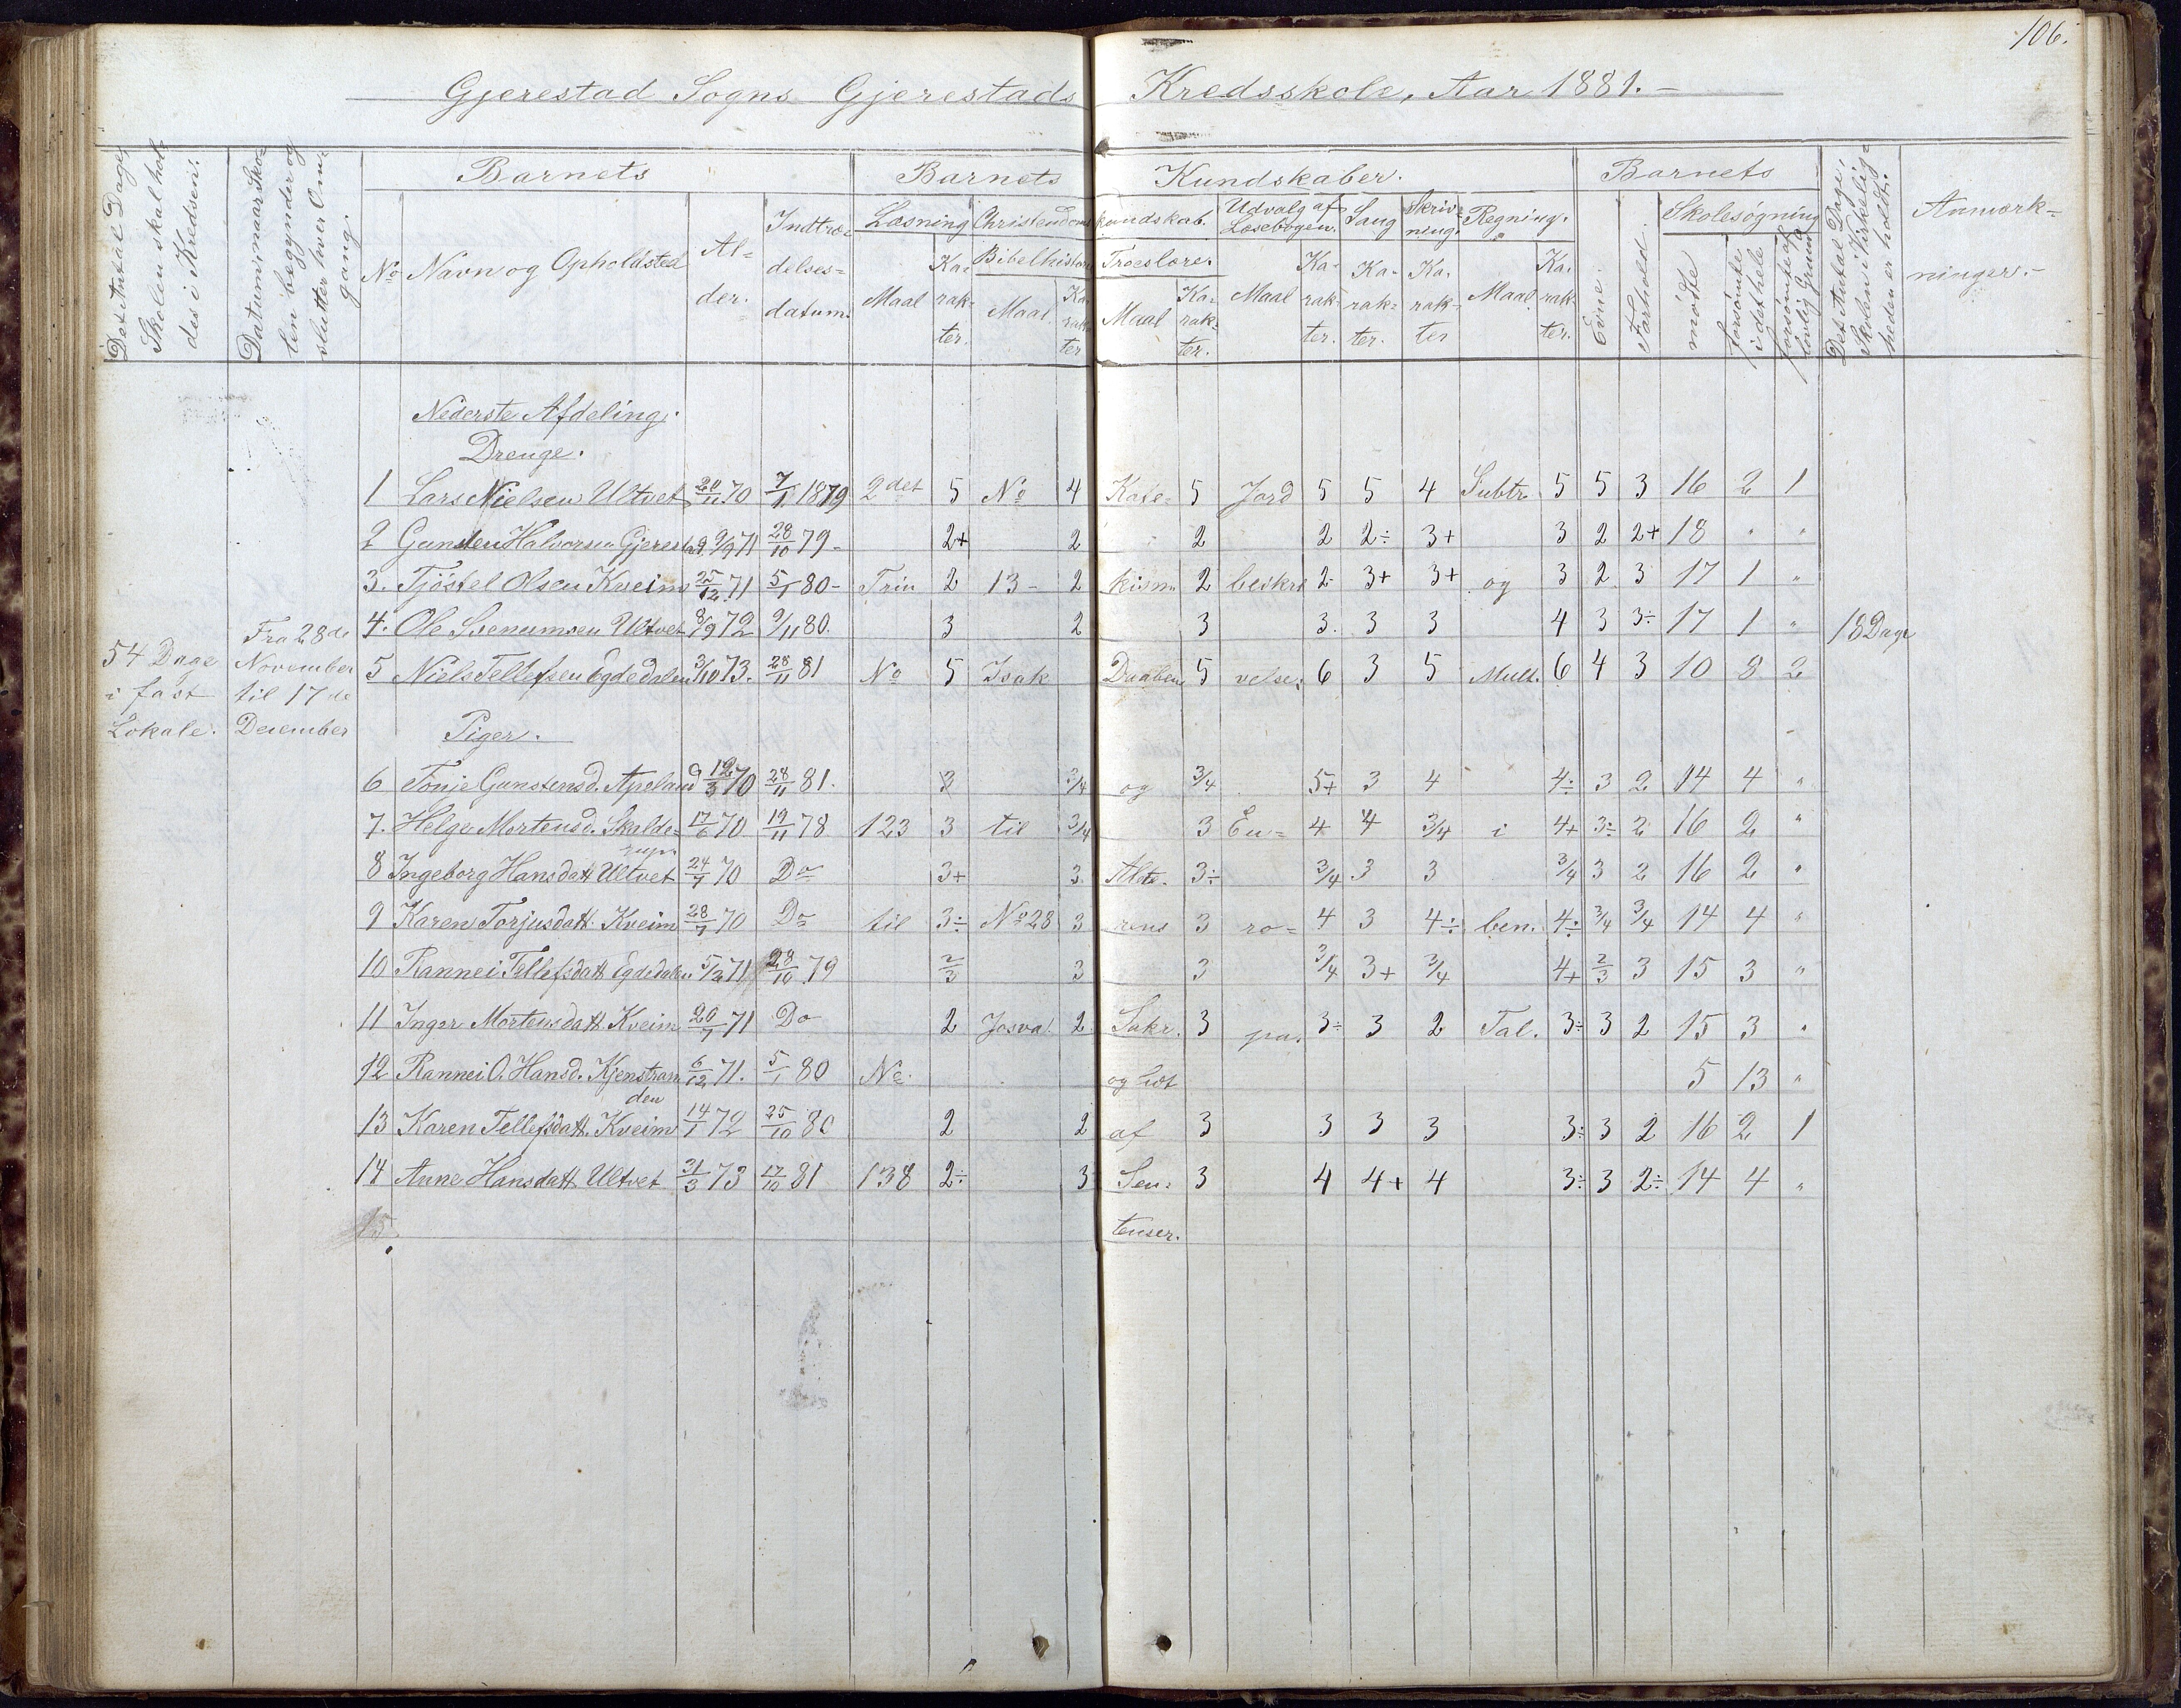 106.
Gjerestad Sogns Gjerestads Kredsskole, Aar 1881.
Det Antal Dage, Skolen skal holdes i Kredsen.
Datum, naar Skolen begynder og slutter hver Omgang.
Barnets
No
Navn og Opholdsted
Alder.
Indtrædelsesdatum.
Barnets Kundskaber.
Læsning
Maal
Karakter.
Christendomskundskab.
Bibelhistorie
Maal.
Karakter
Troeslære.
Maal
Karakter.
Udvalg af Læsebogen.
Maal
Karakter.
Sang
Karakter.
Skrivning.
Karakter
Regning.
Maal
Karakter.
Barnets
Evne.
Forhold.
Skolesøgning
mødte
forsømte i det hele
forsømte af lovlig Grund
Det Antal Dage, Skolen i Virkeligheden er holdt.
Anmærkninger.-
54 Dage
i fast
Lokale.
Fra 28de
November
til 17de
December
18 Dage
Nederste Afdeling.
Drenge.
1 Lars Nielsen Ultvet 20/11 70 7/1 1879 2det 5 No 4 Kate- 5 Jord 5 5 4 Subtr. 5 5 3 16 2 1
2 Gunsten Halvorsen Gjerestad 9/9 71 28/10 79- 2+ 2 2 2 2÷ 3+ 3 2 2+ 18 " "
3. Tjöstel Olsen Kveim 25/12 71 5/1 80- Trin 2 13- 2 kism. 2 beskri 2 3+ 3+ og 3 2 3 17 1 "
4. Ole Svenumsen Ultvet 8/9 72 9/11 80. 3 2 3 3. 3 3 4 3 3÷ 17 1 "
5 Niels Tellefsen Egdedalen 3/10 73. 28/11 81 No 5 Isak Daaben 5 velse. 6 3 5 Mult. 6 4 3 10 8 2
Piger.
6 Tonje Gunstensd. Apeland 12/3 70 28/11 81. 3 3/4 og 3/4 5+ 3 4 4÷ 3 2 14 4 "
7. Helge Mortensd. Skalde= 17/6 70 19/11 78 123 3 til 3/4 3 Eu= 4 4 3/4 i 4+ 3÷ 2 16 2 "
8 Ingeborg Hansdatt Ultvet 24/7 70 Do 3+ 3. Alte. 3÷ 3/4 3 3 3/4 3 2 16 2 "
9 Karen Torjusdatt. Kveim 28/7 70 Do til 3÷ No 28 3 rens 3 ro= 4 3 4÷ ben. 4÷ 3/4 3/4 14 4 "
10 Rannei Tellefsdatt Egdedalen 5/2 71 28/10 79 2/3 3 3 3/4 3+ 3/4 4+ 2/3 3 15 3 "
11 Inger Mortensdatt. Kveim 20/7 71 Do 2 Josva. 2 Sakr. 3 pa. 3÷ 3 2 Tal. 3÷ 3 2 15 3 "
12 Rannei O. Hansd. Kjenstranden 6/12 71. 5/1 80 No. og 5 13 "
13 Karen Tellefsdatt. Kveim 14/1 72 25/10 80 2 2 af 3 3 3 3 3÷ 3 2 16 2 1
14 Anne Hansdatt Ultvet 31/3 73 17/10 81 138 2÷ 3 Sen= 3 4 4+ 4 3÷ 3 2÷ 14 4 "
15 tenser.